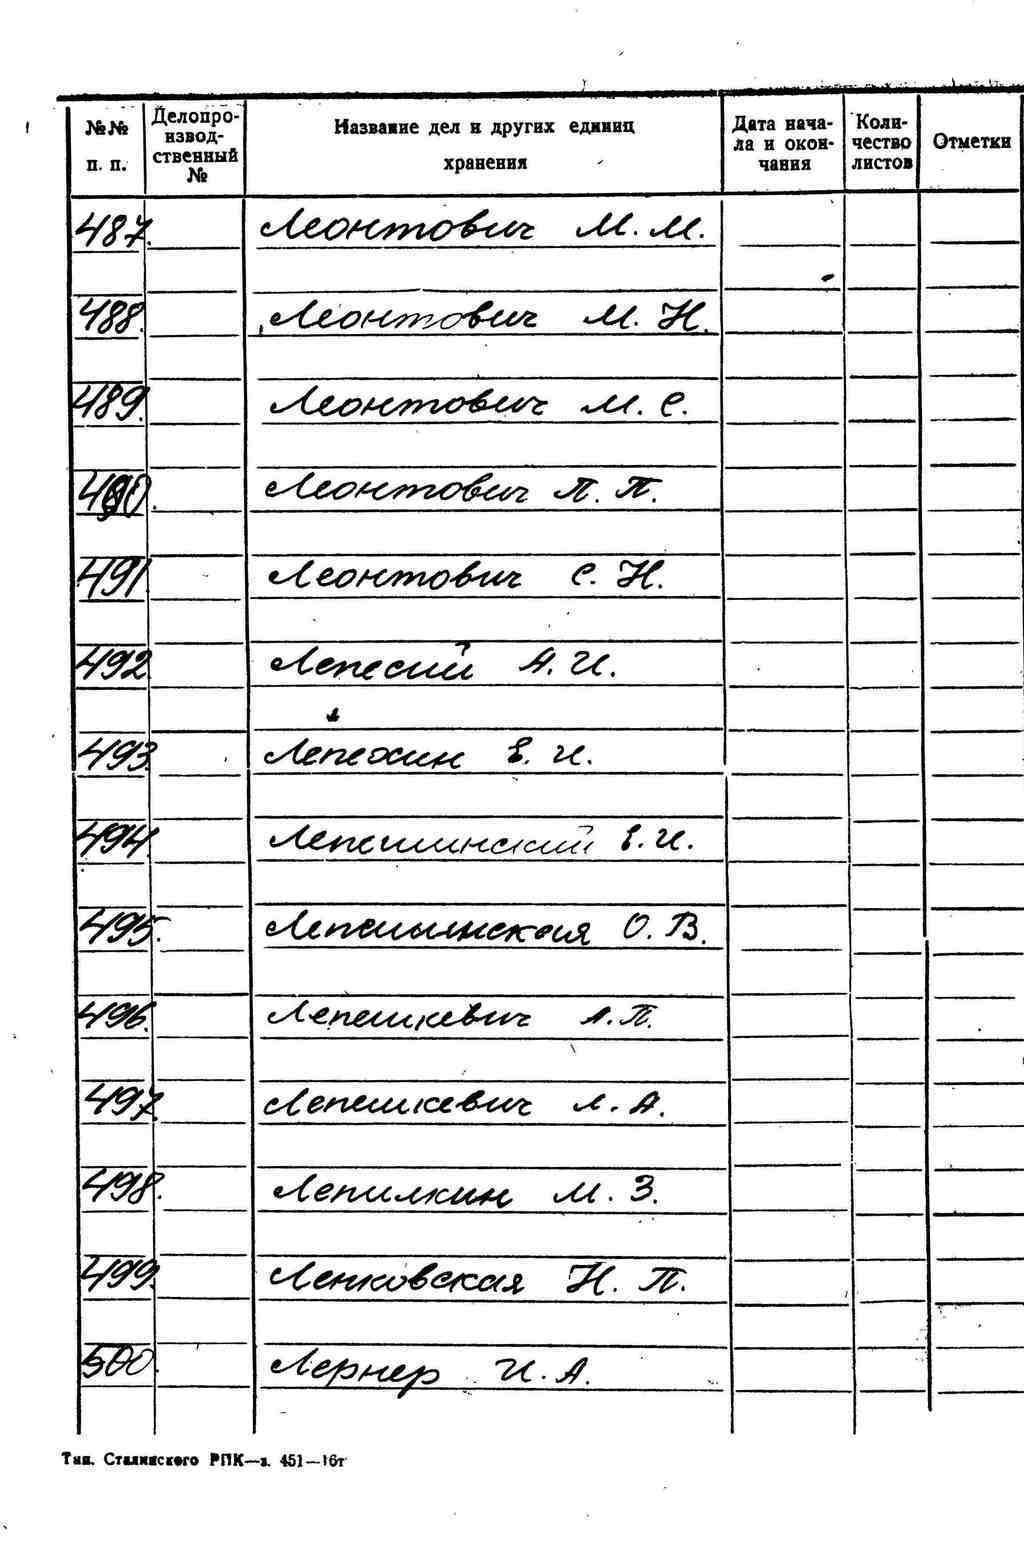 №№ п. п. Делопроизвод-ственный № Название дел и других единиц хранения Дата начала и окончания Количество листов Отметки
487. Леонтович М. М.
488. Леонтович М. Н.
489. Леонтович М. С.
490. Леонтович П. П.
491. Леонтович С. Н.
492. Лепесий А. И.
493. Лепехин Е. И.
494. Лепешинский Е. И.
495. Лепешинская О. В.
496. Лепешкевич А. П.
497. Лепешкевич Л. А.
498. Лепилкин М. З.
499. Ленковская Н. П.
500. Лернер И. А.
Тип. Сталинского РПК—з. 451—16т